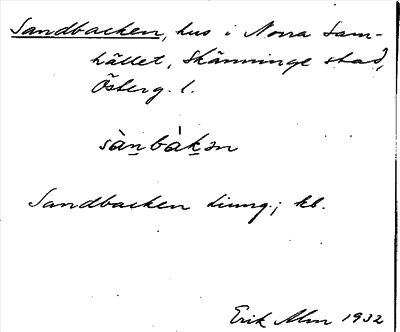 Sandbacken, hus i Norra Sam-
hället, Skänninge stad,
Österg. l.
sànbàkən
Sandbacken Ljung.; kb.
Erik Alm 1932